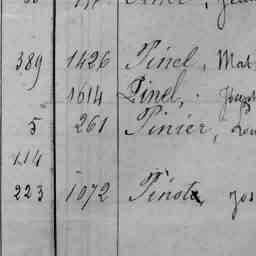 389 1426 Pinel, Mat
1614 Pinel, Joseph
5 261 Pinier, Lou
114
223 1072 Pinot, Jos